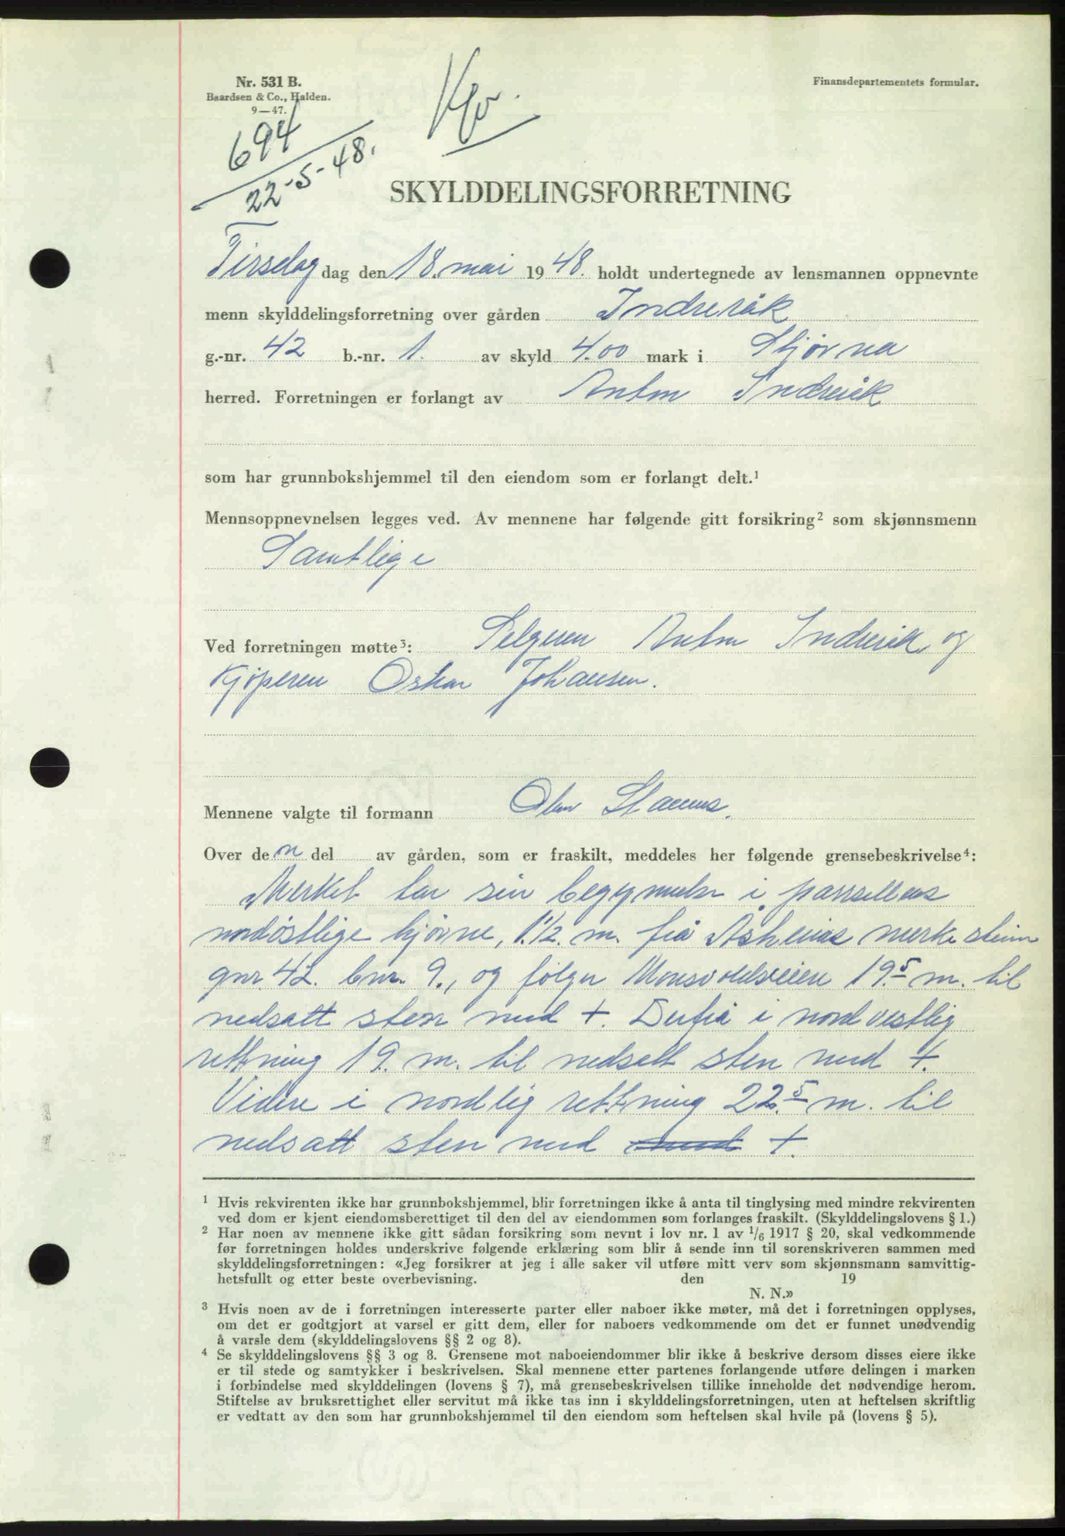 Nr. 531 B.
Baardsen & Co., Halden.
9—47.
Finansdepartementets formular.
694
22-5-48.
SKYLDDELINGSFORRETNING
Tirsdag dag den 18. mai 19 48. holdt undertegnede av lensmannen oppnevnte
menn skylddelingsforretning over gården Indreråk
g.-nr. 42 b.-nr. 1. av skyld 4.00 mark i Stjørna
herred. Forretningen er forlangt av Anton Indreråk
som har grunnbokshjemmel til den eiendom som er forlangt delt.¹
Mennsoppnevnelsen legges ved. Av mennene har følgende gitt forsikring² som skjønnsmenn
Samtlige
Ved forretningen møtte³: Selgeren Anton Indreråk og
Kjøperen Oskar Johansen.
Mennene valgte til formann
Over de n del av gården, som er fraskilt, meddeles her følgende grensebeskrivelse⁴:
Merket tar sin begynnelse i parsellens
nordöstlige hjørne, 1.1/2. m. fra merke steiin
gnr 42. bnr. 9., og følger 19.5 m. til
nedsatt sten med +. Derfra i nordvestlig
rettning 19. m. til nedsatt sten med +.
Videre i nordlig rettning 22.5 m. til
nedsatt sten med +.
¹ Hvis rekvirenten ikke har grunnbokshjemmel, blir forretningen ikke å anta til tinglysing med mindre rekvirenten
ved dom er kjent eiendomsberettiget til den del av eiendommen som forlanges fraskilt. (Skylddelingslovens § 1.)
² Har noen av mennene ikke gitt sådan forsikring som nevnt i lov nr. 1 av 1/6 1917 § 20, skal vedkommende
før forretningen holdes underskrive følgende erklæring som blir å sende inn til sorenskriveren sammen med
skylddelingsforretningen: «Jeg forsikrer at jeg i alle saker vil utføre mitt verv som skjønnsmann samvittig-
hetsfullt og etter beste overbevisning. den 19
N. N.»
³ Hvis noen av de i forretningen interesserte parter eller naboer ikke møter, må det i forretningen opplyses,
om det er godtgjort at varsel er gitt dem, eller for naboers vedkommende om det er funnet unødvendig
å varsle dem (skylddelingslovens §§ 2 og 8).
⁴ Se skylddelingslovens §§ 3 og 8. Grensene mot naboeiendommer blir ikke å beskrive dersom disses eiere ikke
er til stede og samtykker i beskrivelsen. Skal mennene etter partenes forlangende utføre delingen i marken
i forbindelse med skylddelingen (lovens § 7), må grensebeskrivelsen tillike inneholde det nødvendige herom.
Stiftelse av bruksrettighet eller servitut må ikke tas inn i skylddelingsforretningen, uten at heftelsen skriftlig
er vedtatt av den som har grunnbokshjemmel til den eiendom som heftelsen skal hvile på (lovens § 5).